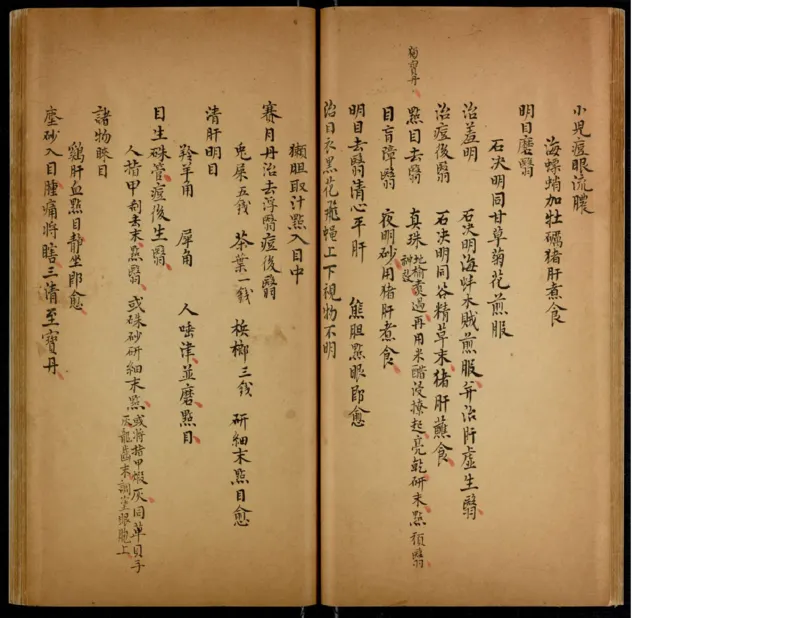 小兒痘眼流膿
海螵蛸加牡礪猪肝煮食
明目磨翳
石决明同甘草菊花煎服
治羞明　石决明海蚌木賊煎服并治肝虛生翳
治痘後翳　石决明同谷精草末猪肝蘸食
點目去翳　真珠地榆煮過再用米醋浸撩起亮乾研末點頹翳
神效
獨寶丹
目盲障翳　夜明砂用猪肝煮食
明目去翳清心平肝　熊胆點眼即愈
治目衣黑花飛蝇上下視物不明
獺胆取汁點入目中
賽月丹治去浮翳痘後翳
兎屎五錢　茶葉一錢　梹榔三錢　研細末點目愈
清肝明目
羚羊角　犀角　人唾津並磨點目
目生硃管痘後生翳
人指甲刮去末點翳　或硃砂研細末點　或将指甲煅灰同草貝子
灰龍齒末調塗眼胞上
諸物眯目
鷄肝血點目靜坐即愈
塵砂入目腫痛将瞎三清至寶丹